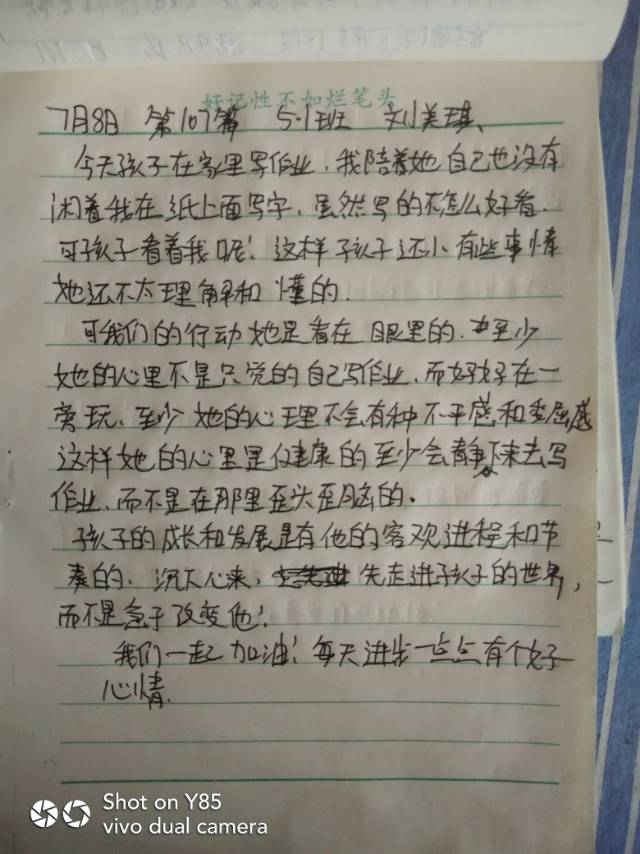 好记性不如烂笔头
7月8日 第107篇 5.1班 刘美琪、
今天孩子在家里写作业,我陪着她自己也没有
闲着我在纸上面写字,虽然写的不怎么好看.
可孩子看着我呢!这样孩子还小有些事情
她还不太理解和懂的.
可我们的行动她是看在眼里的.至少
她的心里不是只觉的自己写作业,而妈妈在一
旁玩、至少她的心理不会有种不平感和委屈感
这样她的心里是健康的至少会静下来去写
作业,而不是在那里歪头歪脑的。
孩子的成长和发展是有他的客观进程和节
奏的.沉下心来,先走进孩子的世界,
而不是急于改变他!
我们一起加油!每天进步一点点有个好
心情.
Shot on Y85
vivo dual camera